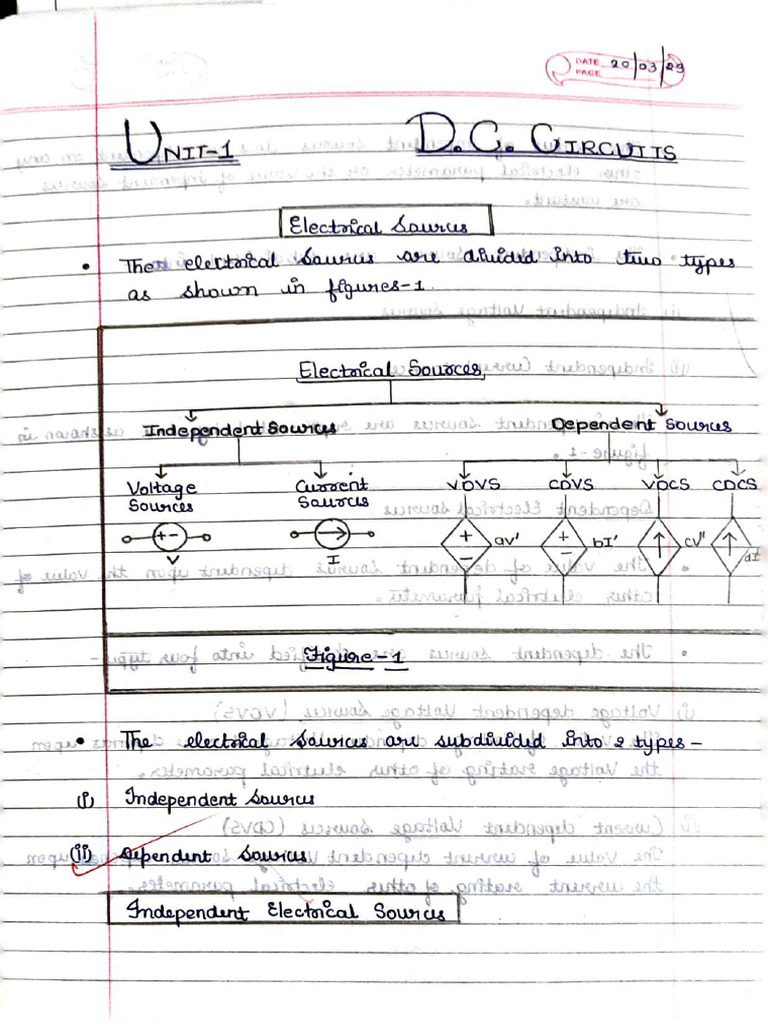 DATE 20/03/23
PAGE
UNIT-1 D.C. CIRCUITS
Electrical Sources
• The electrical sources are divided into two types
as shown in figures-1.
Electrical Sources
Independent Sources Dependent Sources
Voltage Sources Current Sources VDVS CDVS VDCS CDCS
+ - + - + -
V I av' bI' cv' dI'
Figure-1
• The electrical sources are subdivided into 2 types-
(i) Independent Sources
(ii) Dependent Sources
Independent Electrical Sources